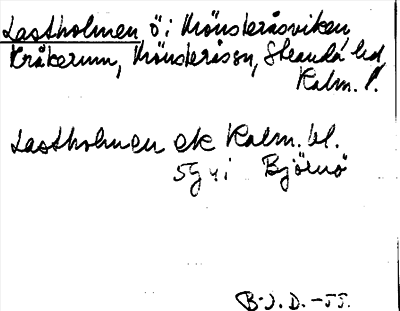 Lastholmen ö i Mönsteråsviken,
Kråkerum, Mönsterås sn, Stranda hd,
Kalm. l.
Lastholmen ek Kalm. bl.
5G 4 i Björnö
B.J.D. -55.